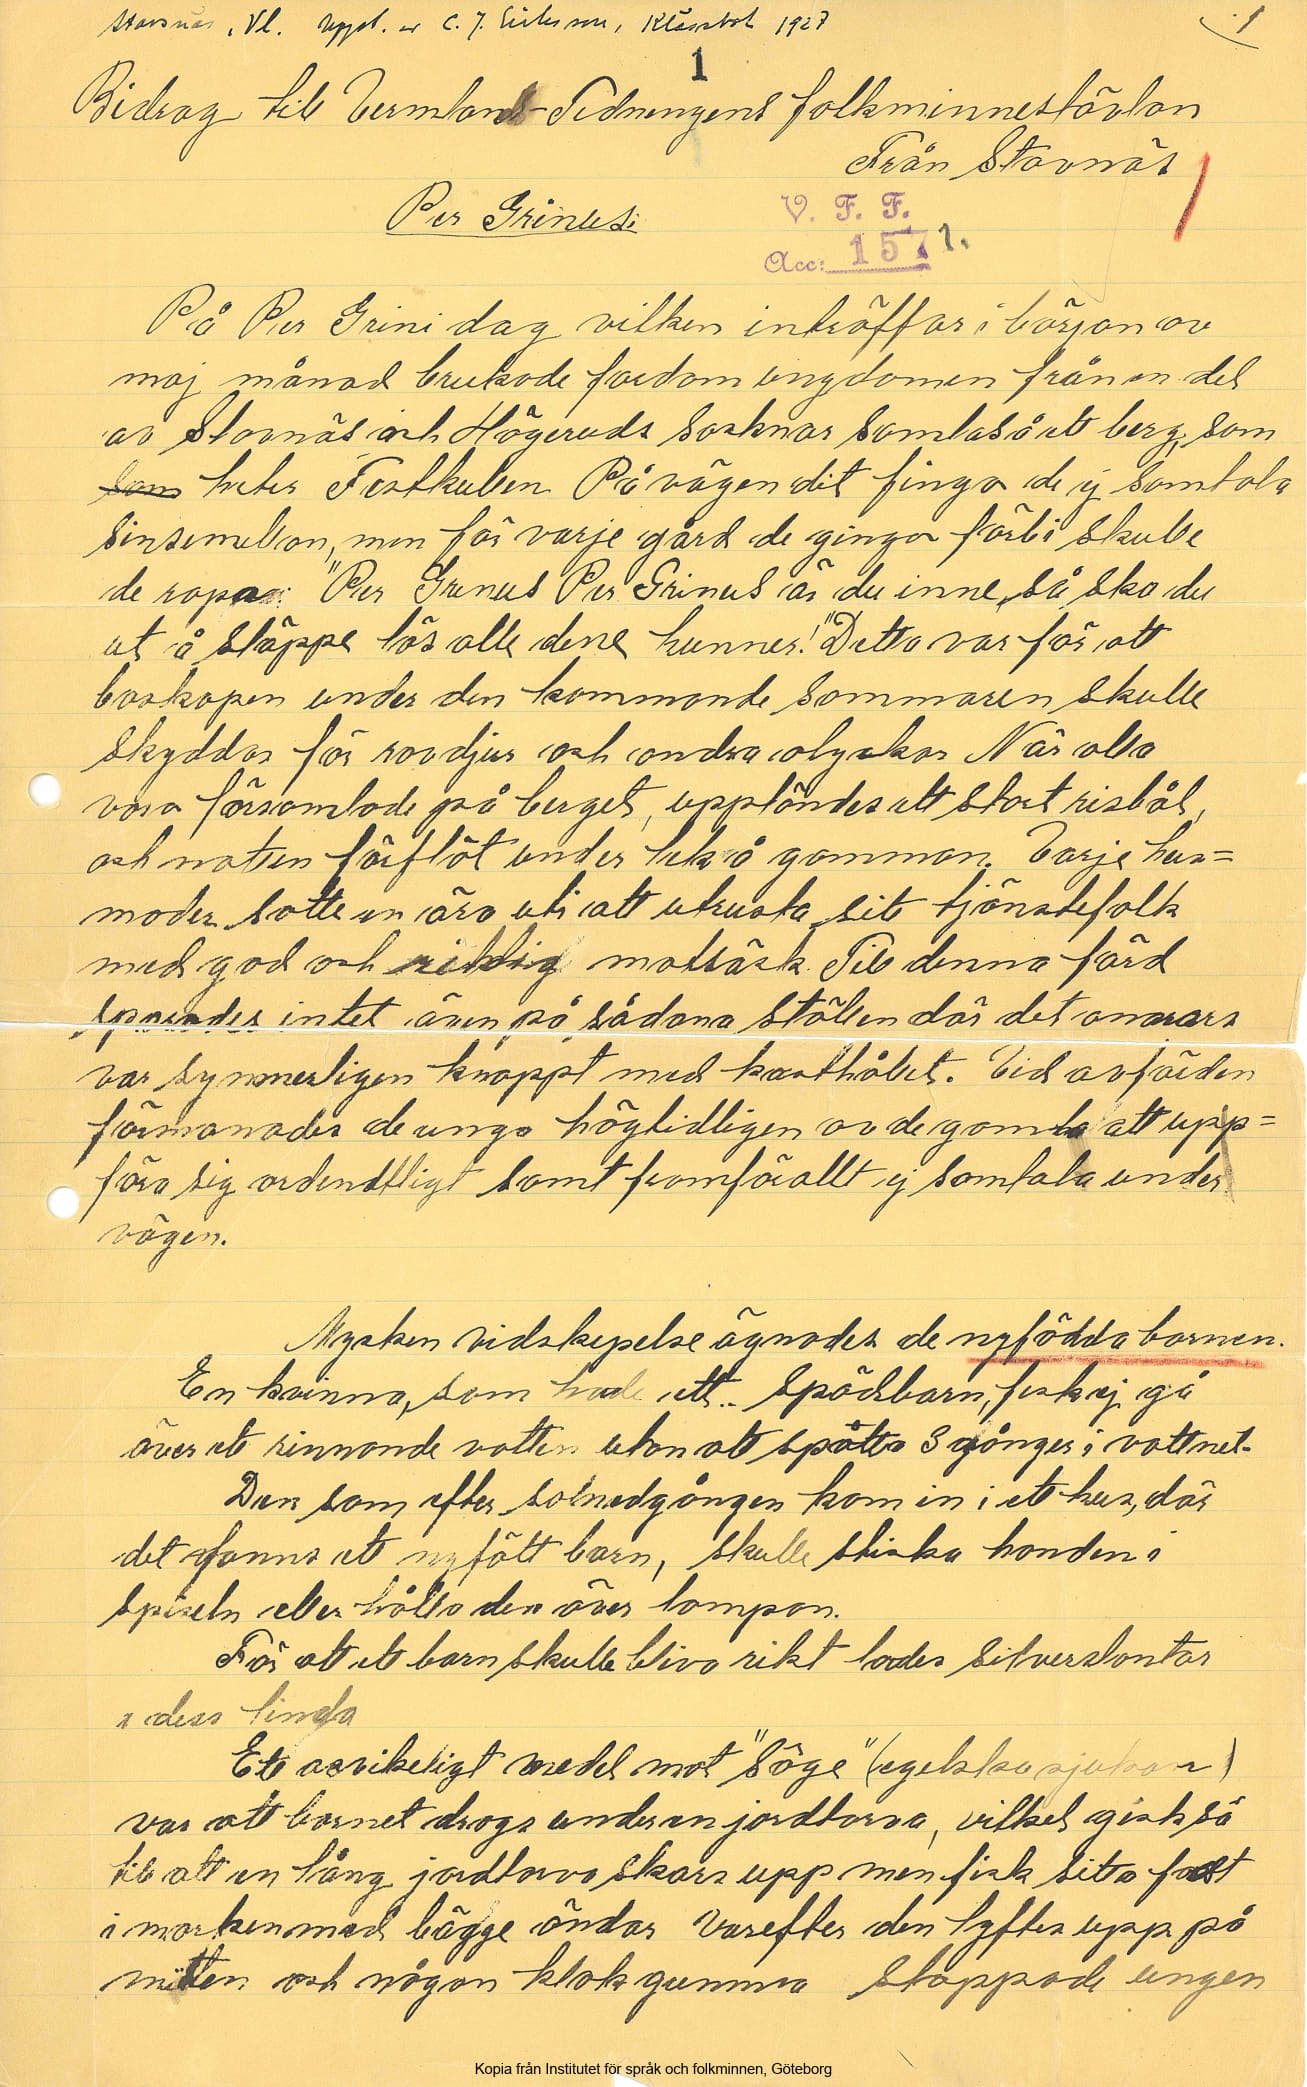 Stavnäs, Vl. Uppt. av C. J. Eriksson, Klässbol 1927
1
1
Bidrag till Vermlands-Tidningens folkminnestävlan
Från Stavnäs
Per Grinus:
V. F. F.
Acc: 157 1.
På Per Grini dag vilken inträffar i början av
maj månad brukade fordom ungdomen från en del
av Stavnäs och Högeruds socknar samlas å ett berg, som
som heter Fästkullen På vägen dit fingo de ej samtala
sinsemellan, men för varje gård de gingo förbi skulle
de ropa: "Per Grinus Per Grinus är du inne, så ska du
ut å släppe lös alle dene hunner!" Detta var för att
boskapen under den kommande sommaren skulle
skyddas för rovdjur och andra olyckor När alla
voro församlade på berget, uppländes ett stort risbål,
och natten förflöt under lek å gamman. Varje hus=
moder satte en ära uti att utrusta sitt tjänstefolk
med god och riklig matsäck. Till denna färd
sparades intet även på sådana ställen där det annars
var synnerligen knappt med kosthållet. Vid avfärden
förmanades de unga högtidligen av de gamla att upp=
föra sig ordentligt samt framförallt ej samtala under
vägen.
Mycken vidskepelse ägnades de nyfödda barnen.
En kvinna, som hade ett spädbarn, fick ej gå
över ett rinnande vatten utan att spotta 3 gånger i vattnet.
Den som efter solnedgången kom in i ett hus, där
det fanns ett nyfött barn, skulle sticka handen i
spiseln eller hålla den över lampan.
För att ett barn skulle bliva rikt lades silverslantar
i dess linda
Ett osvikeligt medel mot "Säge" (egelska sjukan)
var att barnet drogs under en jordtorva, vilket gick så
till att en lång jordtorva skars upp men fick sitta fast
i marken med bägge ändar Varefter den lyftes upp på
mitten och någon klok gumma stoppade ungen
Kopia från Institutet för språk och folkminnen, Göteborg